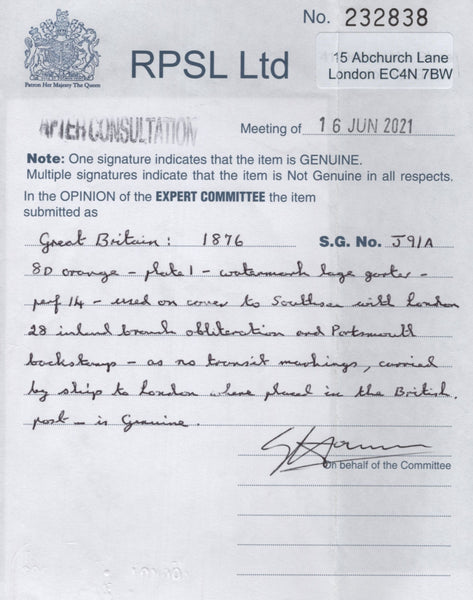 No. 232838
Patron Her Majesty The Queen
RPSL Ltd
15 Abchurch Lane
London EC4N 7BW
AFTER CONSULTATION
Meeting of 16 JUN 2021
Note: One signature indicates that the item is GENUINE.
Multiple signatures indicate that the item is Not Genuine in all respects.
In the OPINION of the EXPERT COMMITTEE the item
submitted as
Great Britain: 1876 S.G. No. J91A
8D orange - plate 1 - watermark large garter -
perf 14 - used on cover to Southsea with London
28 inland branch obliteration and Portsmouth
backstamp - as no transit markings, carried
by ship to London where placed in the British
post - is Genuine.
On behalf of the Committee